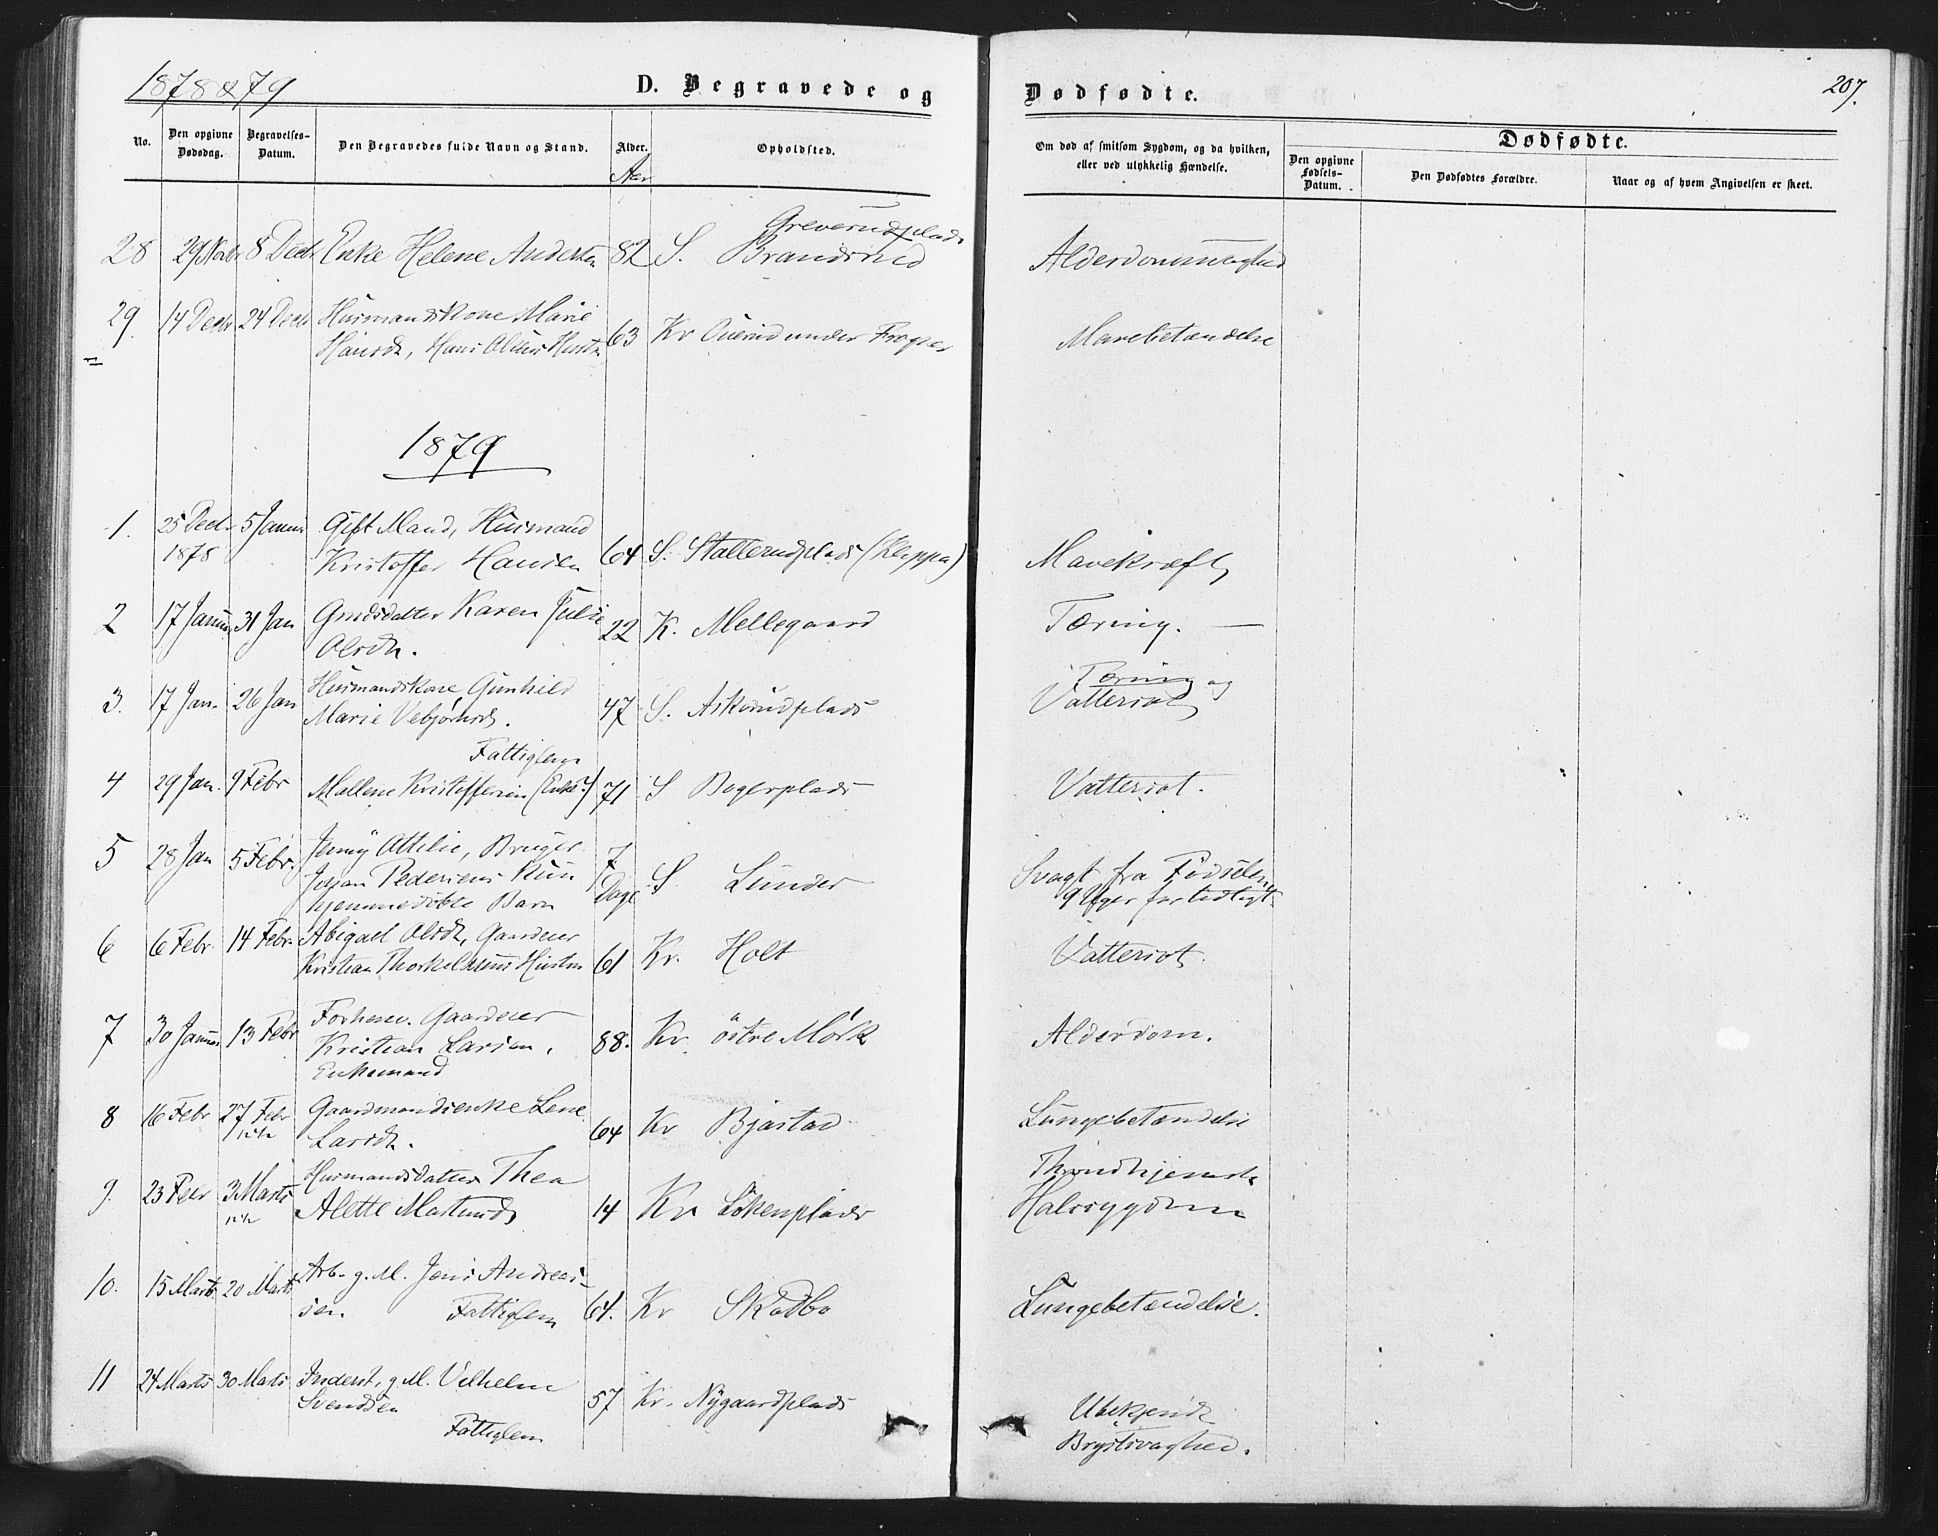 1878 & 79
D. Begravede og Dødfødte.
207.
No.
Den opgivne Dødsdag.
Begravelses-Datum.
Den Begravedes fulde Navn og Stand.
Alder.
Aar
Opholdsted.
Om død af smitsom Sygdom, og da hvilken,
eller ved ulykkelig Hændelse.
Dødfødte.
Den opgivne Fødsels-Datum.
Den Dødfødtes Forældre.
Naar og af hvem Angivelsen er skeet.
Greverudplads
28 29 Novbr 8 Decbr Enke Helene Andersen 82 S. Brandsrud Alderdomssvaghed
29. 14 Decbr 24 Decbr Huusmandskone Marie
Hansdt, Hans Olsens Hustr 63 Kr under Frogner Mavebetændelse
1879
1. 25 Decbr 5 Januar Gift Mand, Huusmand
1878 Kristoffer Hansen 64 S. Stallerudplads (Kleppen) Mavekræft
2 17 Januar 31 Jan Grdsdatter Karen Julie
Olsdt. 22 K. Mellegaard Tæring.
3. 17 Jan. 26 Jan Huusmandskone Gunhild
Marie Vebjørnsd. 47 S. Askerudplads Tæring og
Vattersot
Fattiglem
4 29 Jan. 9 Febr Mallene Kristoffersen (Enke?) 71 S Bogerplads Vattersot.
5 28 Jan 5 Febr. Jenny Attilie, Bruger
Johan Pedersens Kun
hjemmedøbte Barn 7 Dage S Lunder Svagt fra Fødselen,
9 Uger for tidligt.
6 6 Febr. 14 Febr. Abigael Olsdt, Gaardeier
Kristian Thorkelsens Hustru 61 Kr. Holt Vattersot.
7 30 Januar 13 Febr Forhenv. Gaardeier
Kristian Larsen,
Enkemand 88. Kr. östre Mørk Alderdom.
8 16 Febr 27 Febr Gaardmandsenke Lene
Larsdt. 64 Kr Bjastad Lungebetændelse
9. 23 Febr 3 Marts Huusmandsdatter Thea
Alette Martinsd 14 Kr Løkenplads Throndhjemske
Halssygdom
10. 15 Marts 20 Marts Arb. g. M. Jens Andreas-
sen. Fattiglem 64. Kr Skodbo Lungebetændelse.
11 24 Marts 30 Marts Inderst, g. M. Vilhelm
Svendsen
Fattiglem 57 Kr. Nygaardplads Ubekjendt
Brystsvaghed.